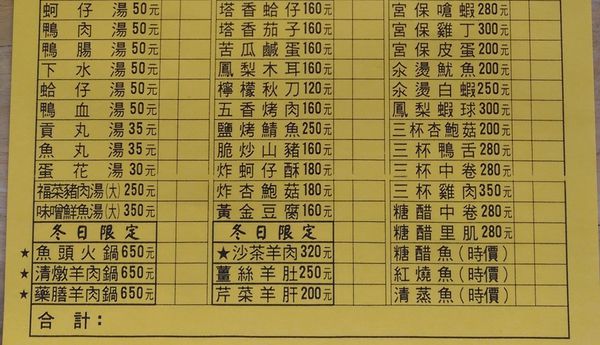 蚵仔湯 50元
鴨肉湯 50元
鴨腸湯 50元
下水湯 50元
蛤仔湯 50元
鴨血湯 50元
貢丸湯 35元
魚丸湯 35元
蛋花湯 30元
福菜豬肉湯(大) 250元
味噌鮮魚湯(大) 350元
冬日限定
★魚頭火鍋 650元
★清燉羊肉鍋 650元
★藥膳羊肉鍋 650元
塔香蛤仔 160元
塔香茄子 160元
苦瓜鹹蛋 160元
鳳梨木耳 160元
檸檬秋刀 120元
五香烤肉 160元
鹽烤鯖魚 250元
脆炒山豬 160元
炸蚵仔酥 180元
炸杏鮑菇 180元
黃金豆腐 160元
冬日限定
★沙茶羊肉 320元
薑絲羊肚 250元
芹菜羊肝 200元
宮保嗆蝦 280元
宮保雞丁 300元
宮保皮蛋 200元
汆燙魷魚 200元
汆燙白蝦 250元
鳳梨蝦球 300元
三杯杏鮑菇 200元
三杯鴨舌 280元
三杯中卷 280元
三杯雞肉 350元
糖醋中卷 280元
糖醋里肌 280元
糖醋魚(時價)
紅燒魚(時價)
清蒸魚(時價)
合計: